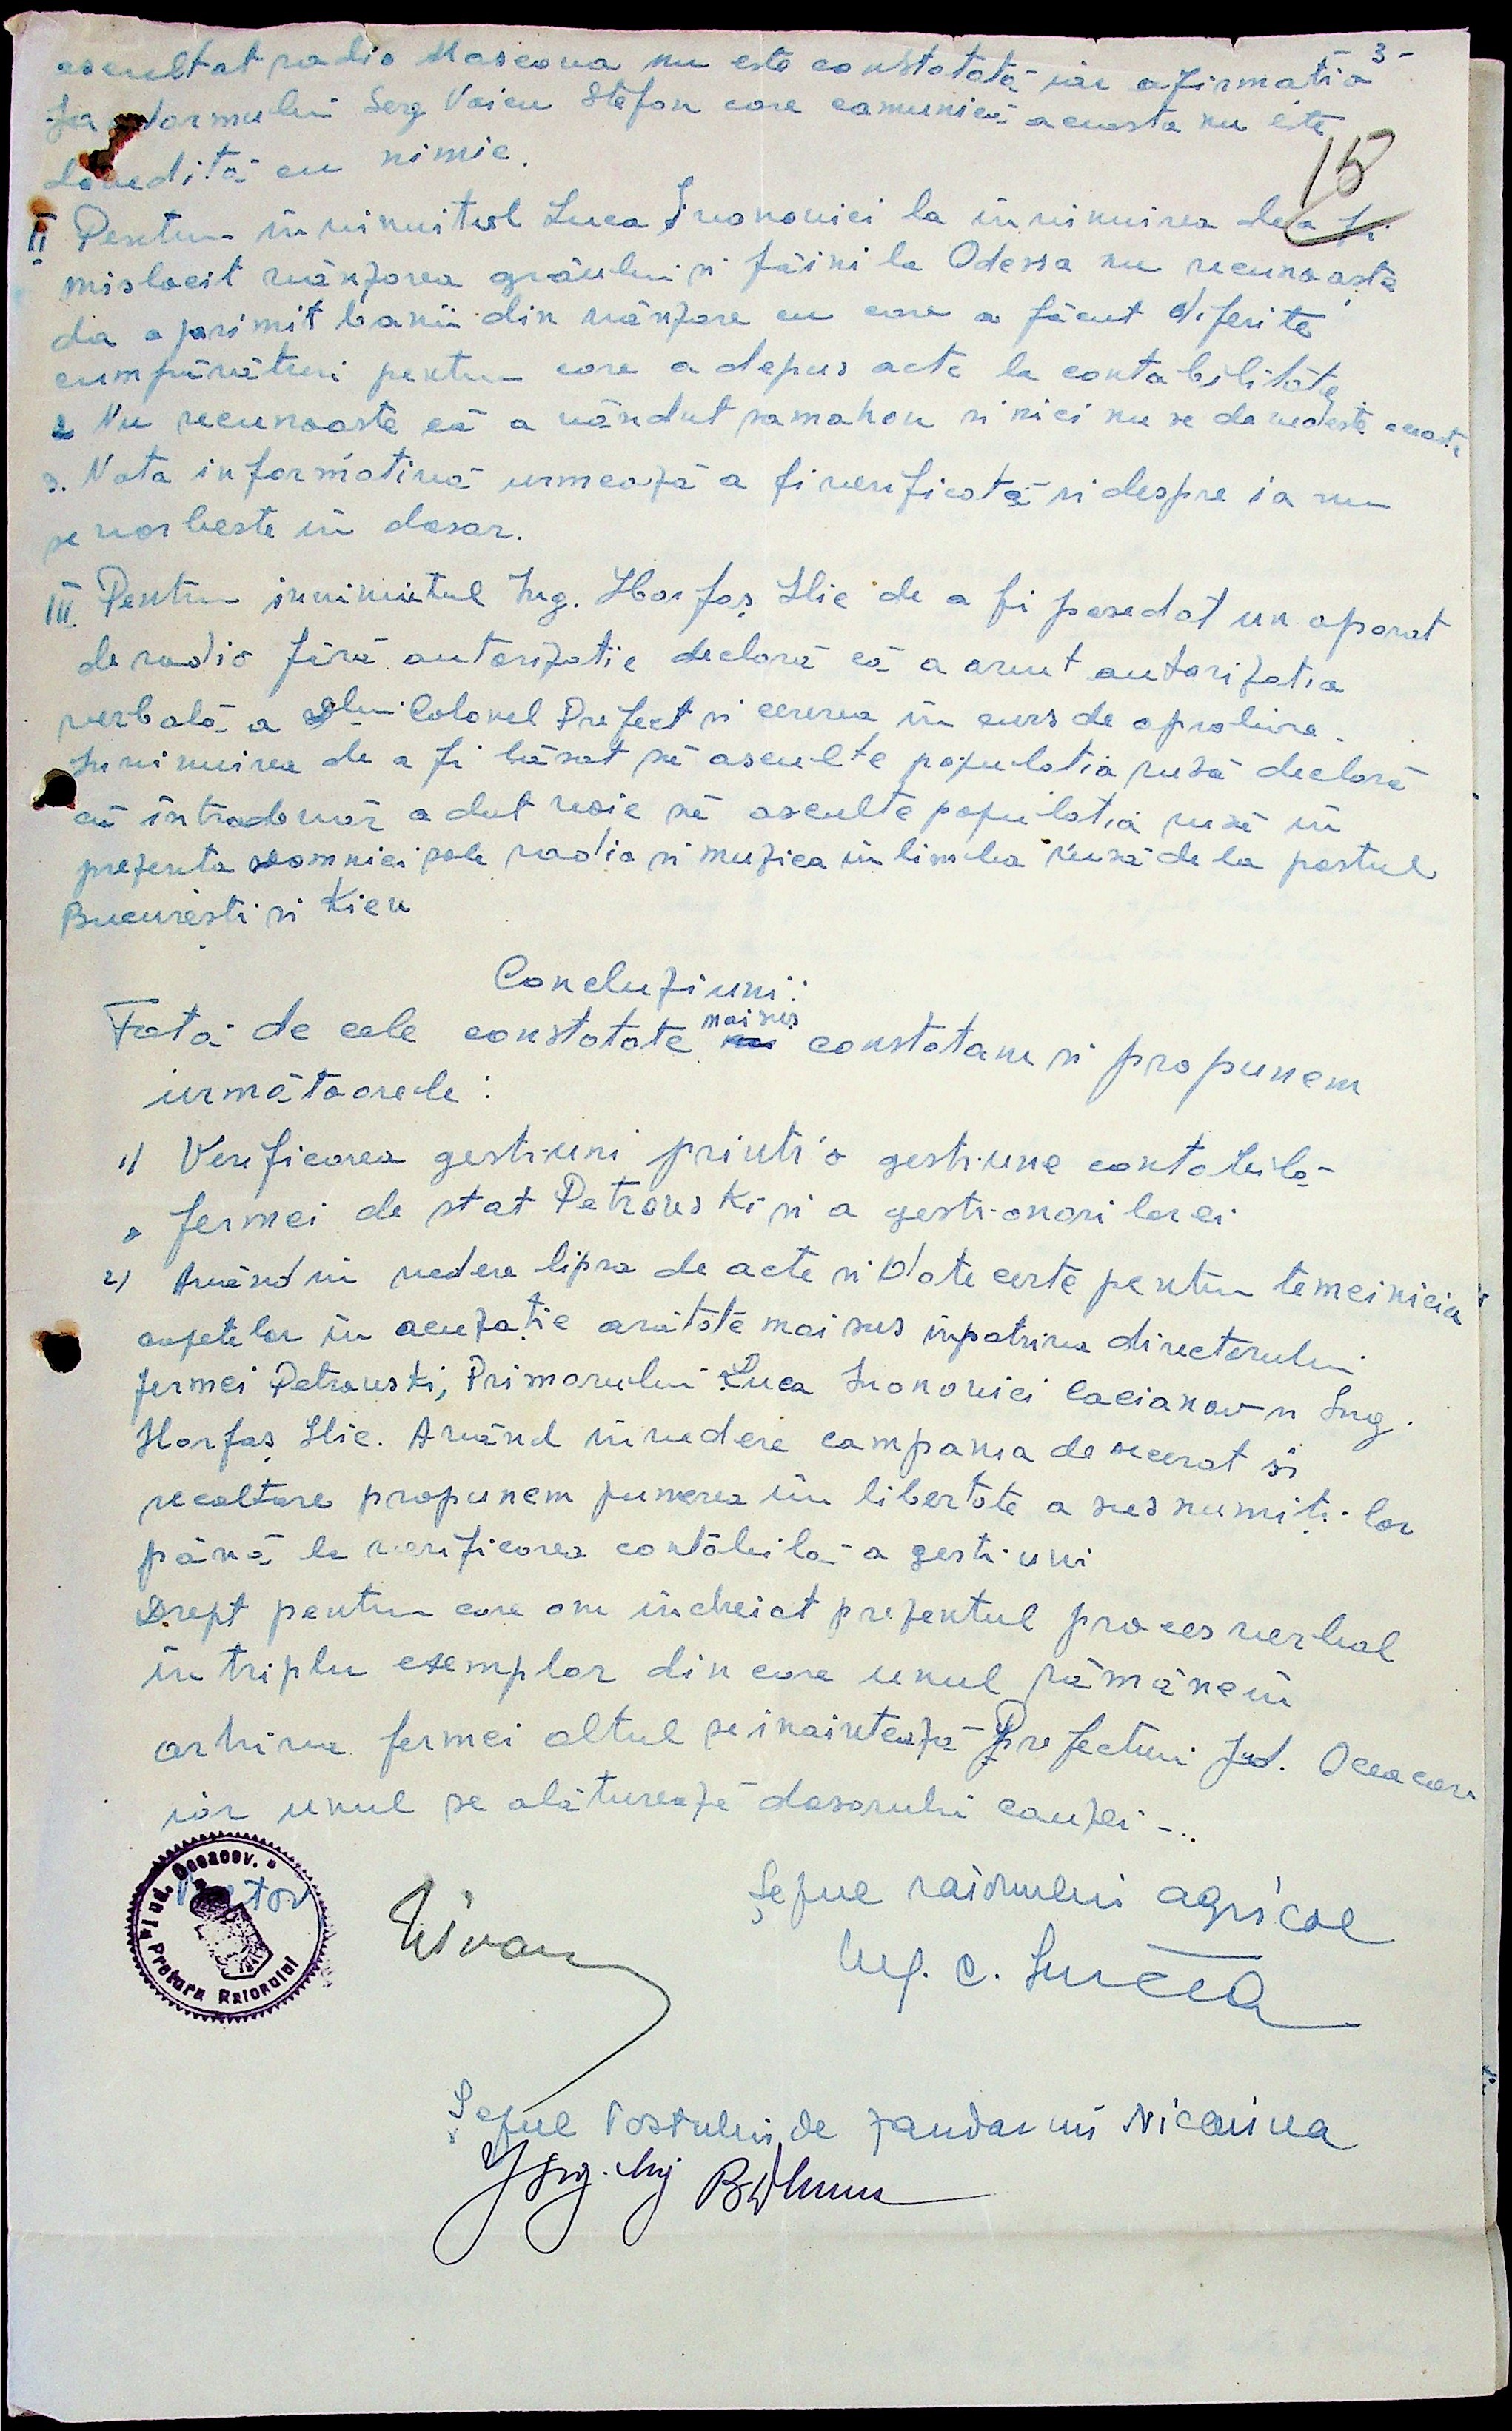 3-
ascultat radio Moscova nu este constatată iar afirmatia
Jandarmului Serg Voicu Stefan care comunică aceasta nu este
dovedită cu nimic.
15
II Pentru invinuitul Luca Inononici la invinuirea de a fi
mislocit vânzarea grâului si făini la Odessa nu recunoaste
da a primit banii din vânzare cu care a făcut diferite
cumpărături pentru care a depus acte la contabilitate
2 Nu recunoaste că a vândut samahon si nici nu se dovedeste aceasta
3. Nota informativă urmează a fi verificată si despre ia nu
se vorbeste in dosar.
III Pentru invinuitul Ing. Harfaș Ilie de a fi posedat un aparat
de radio fără autorizatie declară că a avut autorizatia
verbală a Dlui Colonel Prefect si cererea in curs de aprobare.
Invinuirea de a fi lăsat să asculte populatia rusă declară
că intradevăr a dat voie să asculte populatia rusă in
prezenta domniei sale radio si muzica in limba rusă de la postul
Bucuresti si Kiev
Concluziuni:
Fată de cele constatate mai sus constatam si propunem
următoarele:
1) Verificarea gestiuni printr'o gestiune contabilă
a fermei de stat Petrovski si a gestionarilor ei
2) Având in vedere lipsa de acte si date certe pentru temeinicia
capetelor in acuzație arătate mai sus inpotriva directorului
fermei Petrovski, Primarului Luca Inononici Cacianov si Ing.
Harfaș Ilie. Având in vedere campania de secerat si
recoltare propunem punerea in libertate a susnumiților
până la verificarea contabilă a gestiuni
Drept pentru care am incheiat prezentul proces verbal
in triplu exemplar din care unul rămâne in
arhiva fermei altul se inaintează Prefecturi Jud. Oceacov
iar unul se alăturează dosarului cauzei -..
Pretor
Jud. Oceacov.
Pretura Raionului
Șeful raionului agricol
Ing. C.
Șeful Postului de jandarmi